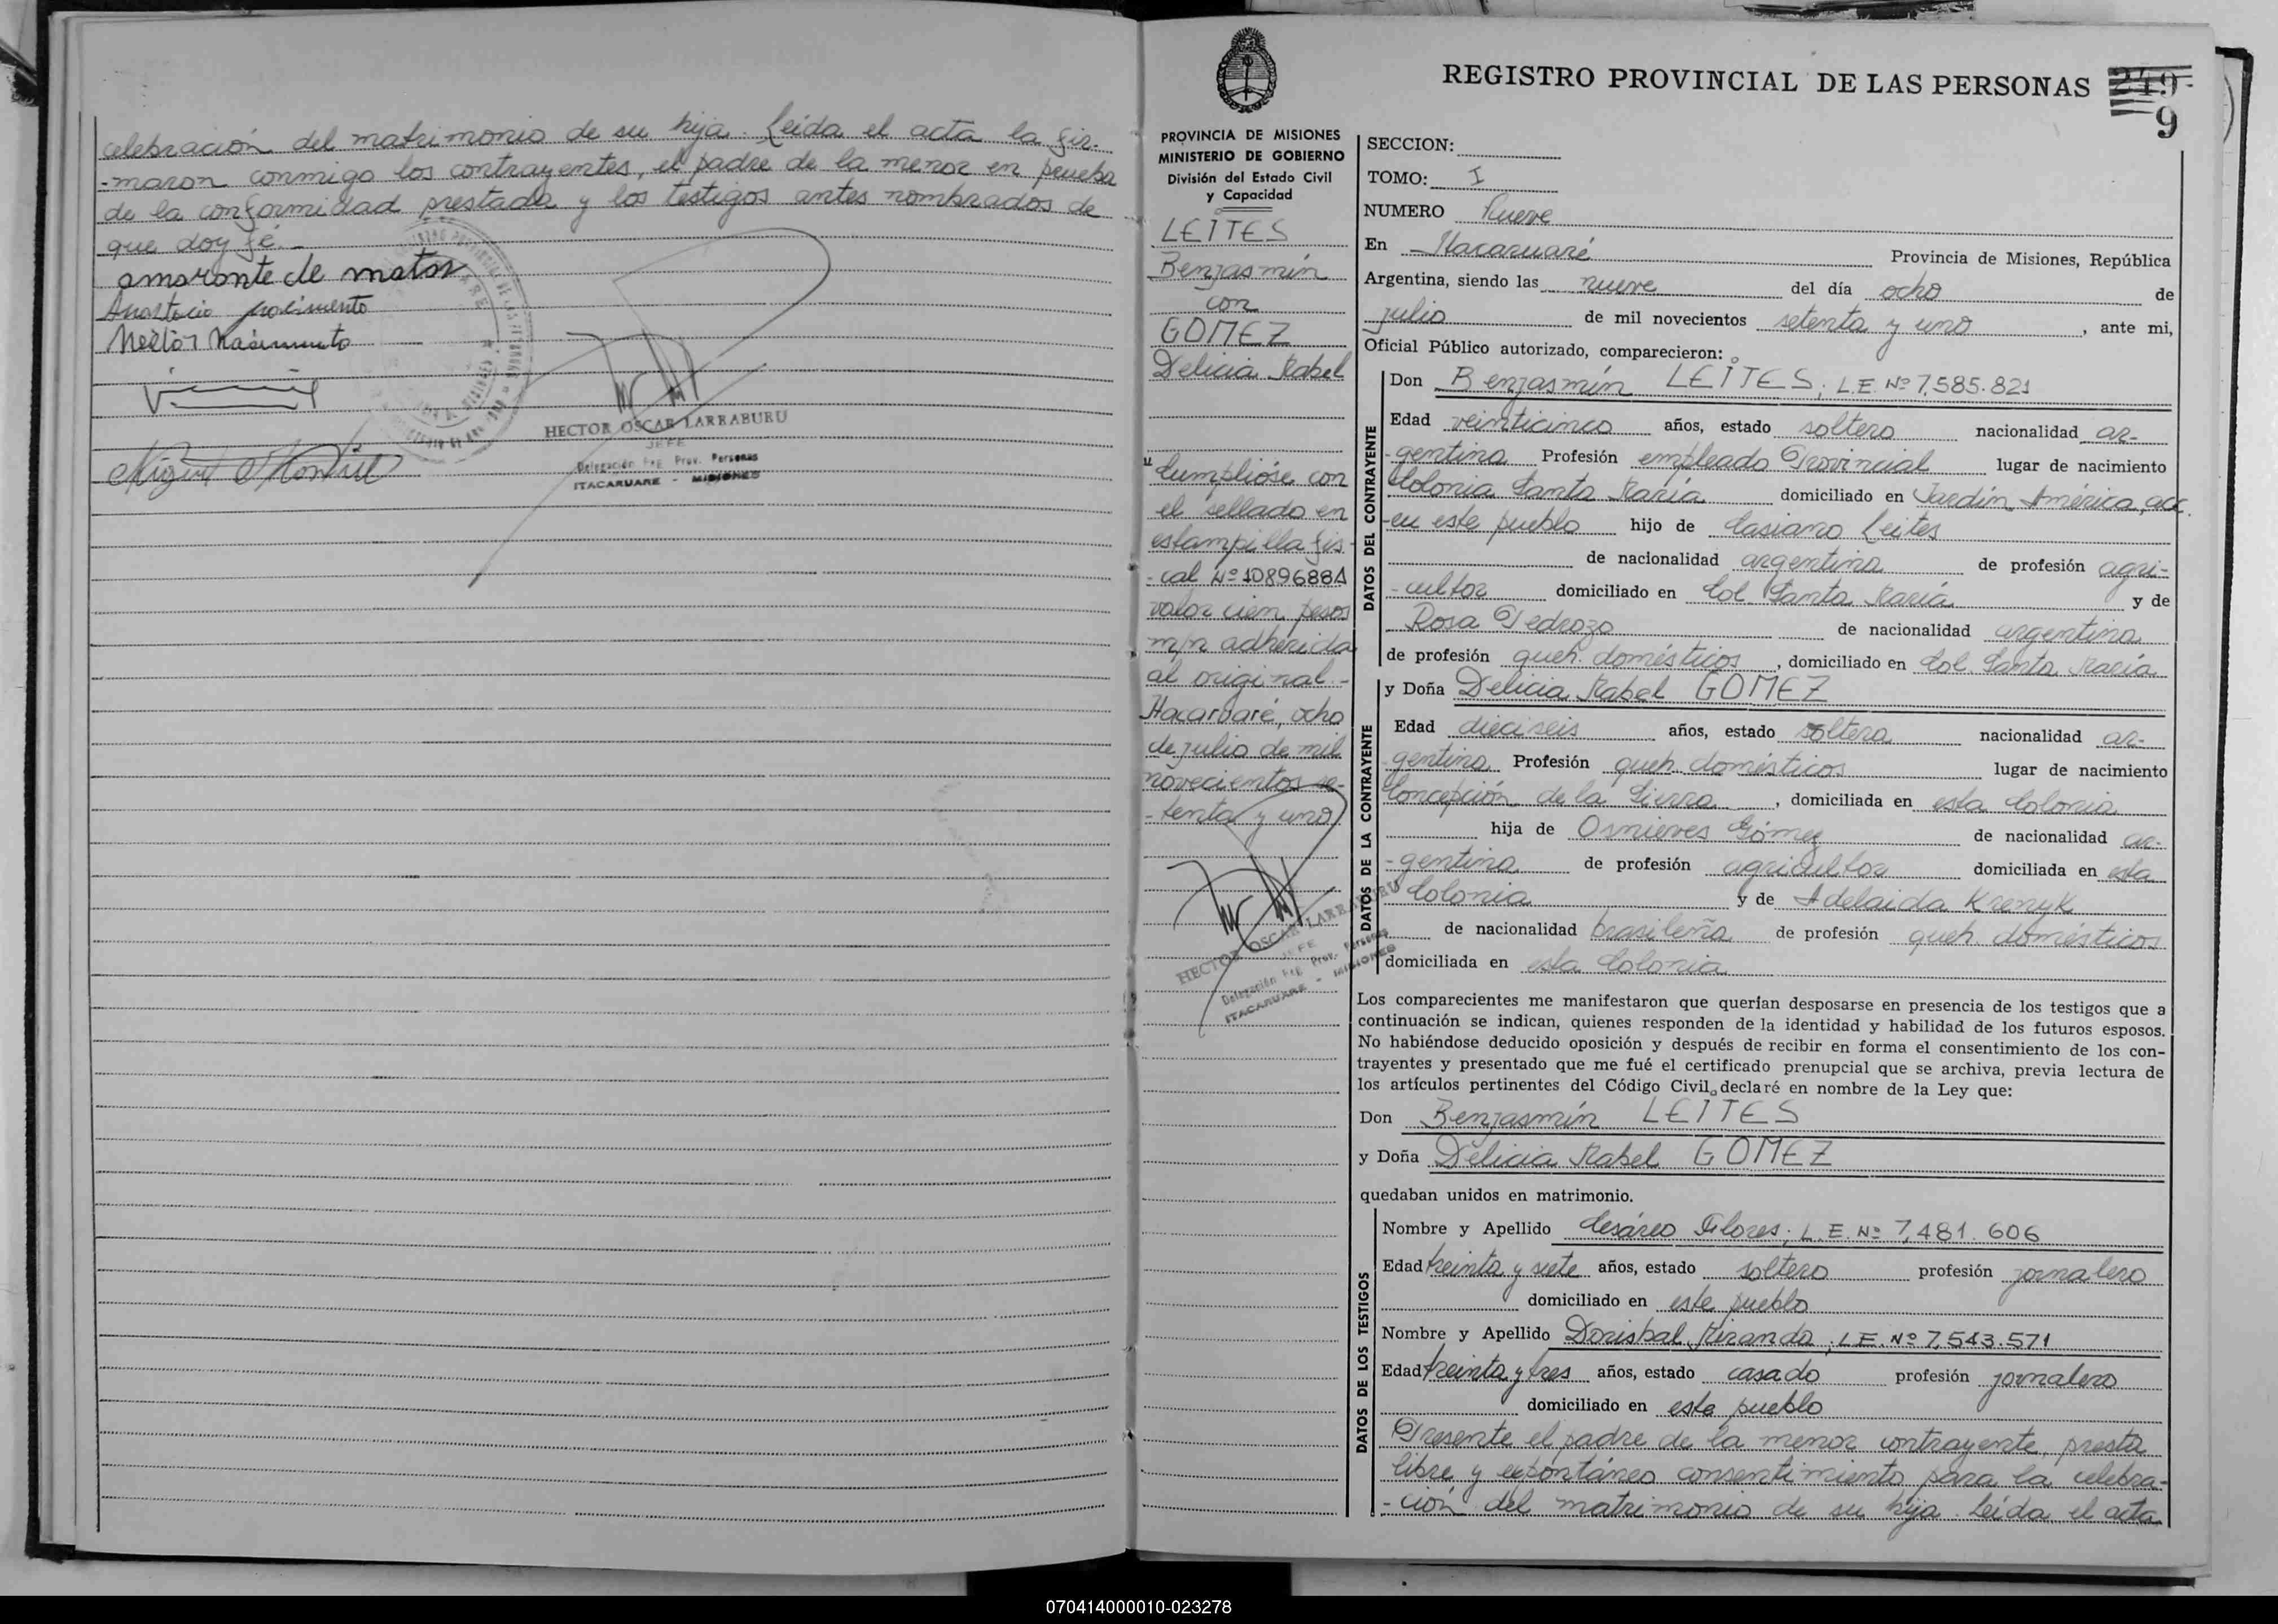 celebración del matrimonio de su hija. Leida el acta la fir-
-maron conmigo los contrayentes, el padre de la menor en prueba
de la conformidad prestada y los testigos antes nombrados de
que doy fé.-
amaronte de matos
Anastacio
Nestor Nasimento
HECTOR OSCAR LARRABURU
JEFE
Delegación Reg. Prov. Personas
ITACARUARE - MISIONES
REGISTRO PROVINCIAL DE LAS PERSONAS
249
9
PROVINCIA DE MISIONES
MINISTERIO DE GOBIERNO
División del Estado Civil
y Capacidad
LEITES
Benjasmín
con
GOMEZ
Delicia Mabel
"Cumplióse con
el sellado en
estampilla fis-
-cal Nº 1089688A
valor cien pesos
m/n adherida
al original.-
Itacaruaré, ocho
de julio de mil
novecientos se-
-tenta y uno
HECTOR OSCAR LARRABURU
JEFE
Delegación Reg. Prov. Personas
ITACARUARE - MISIONES
SECCION:
TOMO: I
NUMERO Nueve
En Itacaruaré Provincia de Misiones, República
Argentina, siendo las nueve del día ocho de
julio de mil novecientos setenta y uno, ante mi,
Oficial Público autorizado, comparecieron:
DATOS DEL CONTRAYENTE
Don Benjasmín LEITES; L.E. Nº 7.585.821
Edad veinticinco años, estado soltero nacionalidad ar-
-gentina Profesión empleado Provincial lugar de nacimiento
Colonia Santa María domiciliado en Jardín América, acc.
-en este pueblo hijo de Casiano Leites
de nacionalidad argentina de profesión agri-
-cultor domiciliado en Col. Santa María y de
Rosa Pedrozo de nacionalidad argentina
de profesión queh. domésticos, domiciliado en Col. Santa María
DATOS DE LA CONTRAYENTE
y Doña Delicia Mabel GOMEZ
Edad dieciseis años, estado soltera nacionalidad ar-
-gentina Profesión queh. domésticos lugar de nacimiento
Concepción de la Sierra, domiciliada en esta Colonia
hija de Osnieves Gómez de nacionalidad ar-
-gentina de profesión agricultor domiciliada en esta
Colonia y de Adelaida Krenyk
de nacionalidad brasileña de profesión queh. domésticos
domiciliada en esta Colonia
Los comparecientes me manifestaron que querían desposarse en presencia de los testigos que a
continuación se indican, quienes responden de la identidad y habilidad de los futuros esposos.
No habiéndose deducido oposición y después de recibir en forma el consentimiento de los con-
trayentes y presentado que me fué el certificado prenupcial que se archiva, previa lectura de
los artículos pertinentes del Código Civil, declaré en nombre de la Ley que:
Don Benjasmín LEITES
y Doña Delicia Mabel GOMEZ
quedaban unidos en matrimonio.
DATOS DE LOS TESTIGOS
Nombre y Apellido Cesáreo Flores; L.E. Nº 7.481.606
Edad treinta y siete años, estado soltero profesión jornalero
domiciliado en este pueblo
Nombre y Apellido Dorisbal Miranda; L.E. Nº 7.543.571
Edad treinta y tres años, estado casado profesión jornalero
domiciliado en este pueblo
Presente el padre de la menor contrayente, presta
libre y espontáneo consentimiento para la celebra-
-ción del matrimonio de su hija. Leida el acta
070414000010-023278